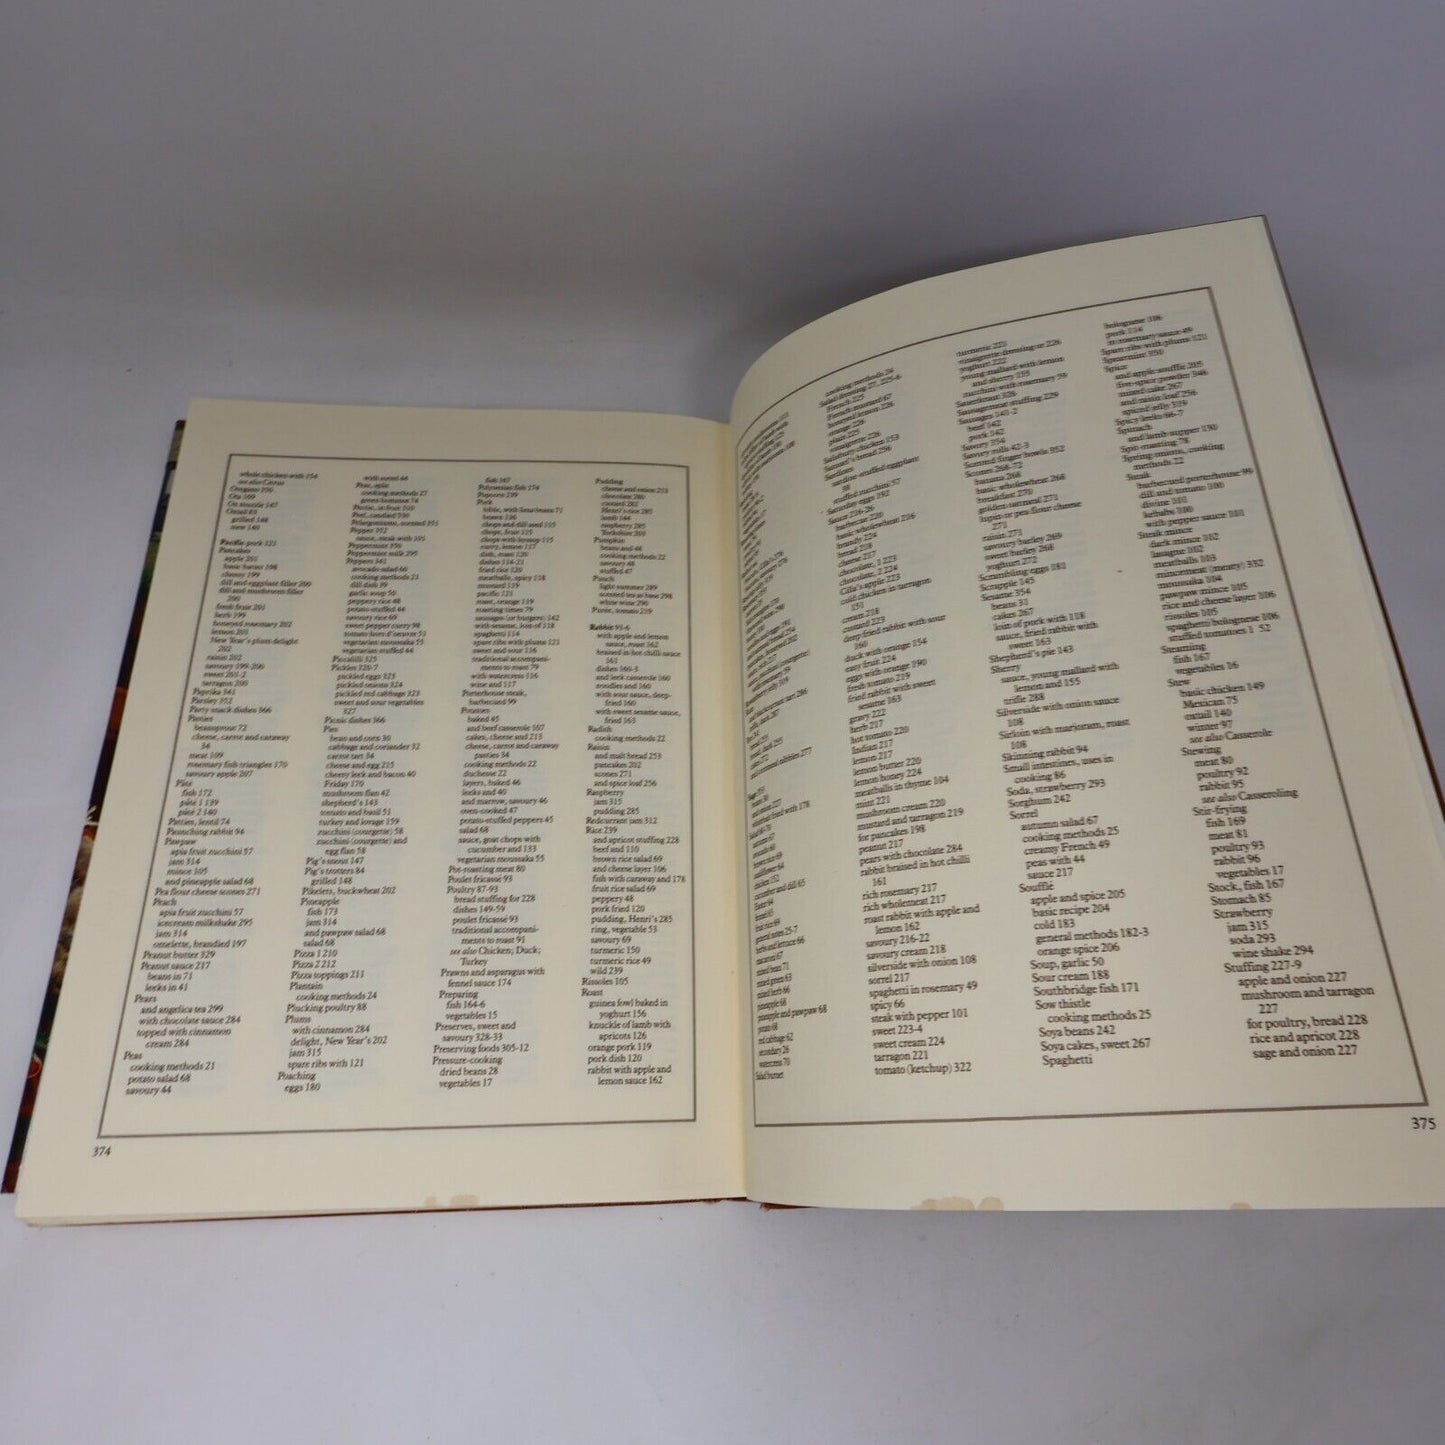 whole chicken with 154
see also Citrus
Oregano 350
Ota 169
Ox muzzle 147
Oxtail 83
grilled 148
stew 140
Pacific pork 121
Pancakes
apple 201
basic batter 198
cheesy 199
dill and eggplant filler 200
dill and mushroom filler
200
fresh fruit 201
herb 199
honeyed rosemary 202
lemon 201
New Year's plum delight
202
raisin 202
savoury 199-200
sweet 201-2
tarragon 200
Paprika 341
Parsley 352
Party snack dishes 366
Pasties
beansprout 72
cheese, carrot and caraway
34
meat 109
rosemary fish triangles 170
savoury apple 207
Pâté
fish 172
pâté 1 139
pâté 2 140
Patties, lentil 74
Paunching rabbit 94
Pawpaw
apia fruit zucchini 57
jam 314
mince 105
and pineapple salad 68
Pea flour cheese scones 271
Peach
apia fruit zucchini 57
icecream milkshake 295
jam 314
omelette, brandied 197
Peanut butter 329
Peanut sauce 217
beans in 71
leeks in 41
Pears
and angelica tea 299
with chocolate sauce 284
topped with cinnamon
cream 284
Peas
cooking methods 21
potato salad 68
savoury 44
with sorrel 44
Peas, split
cooking methods 27
green hommos 74
Pectin, in fruit 310
Peel, candied 330
Pelargoniums, scented 353
Pepper 352
sauce, steak with 101
Peppermint 350
Peppermint milk 295
Peppers 341
avocado salad 60
cooking methods 21
dill dish 39
garlic soup 50
peppery rice 48
potato-stuffed 44
savoury rice 69
sweet pepper curry 98
tomato hors d'oeuvre 51
vegetarian moussaka 55
vegetarian stuffed 44
Piccalilli 325
Pickles 320-7
pickled eggs 323
pickled onions 324
pickled red cabbage 323
sweet and sour vegetables
327
Picnic dishes 366
Pies
bean and corn 30
cabbage and coriander 32
carrot tart 34
cheese and egg 215
cheesy leek and bacon 40
Friday 170
mushroom flan 42
shepherd's 143
tomato and basil 51
turkey and lovage 159
zucchini (courgette) 58
zucchini (courgette) and
egg flan 58
Pig's snout 147
Pig's trotters 84
grilled 148
Pikelets, buckwheat 202
Pineapple
fish 173
jam 314
and pawpaw salad 68
salad 68
Pizza 1 210
Pizza 2 212
Pizza toppings 211
Plantain
cooking methods 24
Plucking poultry 88
Plums
with cinnamon 284
delight, New Year's 202
jam 315
spare ribs with 121
Poaching
eggs 180
fish 167
Polynesian fish 174
Popcorn 239
Pork
bible, with lima beans 71
brawn 136
chops and dill seed 115
chops, fruit 115
chops with hyssop 115
curry, lemon 117
dish, roast 120
dishes 114-21
fried rice 120
meatballs, spicy 118
mustard 119
pacific 121
roast, orange 119
roasting times 79
sausages (or burgers) 142
with sesame, loin of 118
spaghetti 114
spare ribs with plums 121
sweet and sour 116
traditional accompani-
ments to roast 79
with watercress 116
wine and 117
Porterhouse steak,
barbecued 99
Potatoes
baked 45
and beef casserole 107
cakes, cheese and 213
cheese, carrot and caraway
pasties 34
cooking methods 22
duchesse 22
layers, baked 46
leeks and 40
and marrow, savoury 46
oven-cooked 47
potato-stuffed peppers 45
salad 68
sauce, goat chops with
cucumber and 133
vegetarian moussaka 55
Pot-roasting meat 80
Poulet fricassé 93
Poultry 87-93
bread stuffing for 228
dishes 149-59
poulet fricassé 93
traditional accompani-
ments to roast 91
see also Chicken; Duck;
Turkey
Prawns and asparagus with
fennel sauce 174
Preparing
fish 164-6
vegetables 15
Preserves, sweet and
savoury 328-33
Preserving foods 305-12
Pressure-cooking
dried beans 28
vegetables 17
Pudding
cheese and onion 213
chocolate 286
custard 282
Henri's rice 285
lamb 144
raspberry 285
Yorkshire 203
Pumpkin
beans and 48
cooking methods 22
savoury 48
stuffed 47
Punch
light summer 289
scented tea as base 298
white wine 290
Purée, tomato 219
Rabbit 93-6
with apple and lemon
sauce, roast 162
braised in hot chilli sauce
161
dishes 160-3
and leek casserole 160
noodles and 160
with sour sauce, deep-
fried 160
with sweet sesame sauce,
fried 163
Radish
cooking methods 22
Raisin
and malt bread 253
pancakes 202
scones 271
and spice loaf 256
Raspberry
jam 315
pudding 285
Redcurrant jam 312
Rice 239
and apricot stuffing 228
beef and 110
brown rice salad 69
and cheese layer 106
fish with caraway and 178
fruit rice salad 69
peppery 48
pork fried 120
pudding, Henri's 285
ring, vegetable 53
savoury 69
turmeric 150
turmeric rice 49
wild 239
Rissoles 105
Roast
guinea fowl baked in
yoghurt 156
knuckle of lamb with
apricots 126
orange pork 119
pork dish 120
rabbit with apple and
lemon sauce 162
374
Sage 353
and onion 227
Salad 60-70
cucumber and dill 65
general notes 25-7
herbs and lettuce 66
mixed bean 71
mixed green 63
mixed herb 66
pineapple 68
pineapple and pawpaw 68
potato 68
red cabbage 62
secondary 26
watercress 70
Salad burnet
cooking methods 24
Salad dressing 27, 225-6
French 225
French mustard 67
honeyed lemon 226
orange 226
plain 225
vinaigrette 226
Salisbury chicken 153
Samuel's bread 256
Sardines
sardine stuffed eggplant
38
stuffed zucchini 57
Sarsudie eggs 192
Sauce 216-26
barbecue 220
basic wholewheat 216
brandy 224
bread 218
cheese 217
chocolate, 1 223
chocolate, 2 224
Cilla's apple 223
cold chicken in tarragon
151
cream 218
custard 223
deep fried rabbit with sour
160
duck with orange 154
easy fruit 224
eggs with orange 190
fresh tomato 219
fried rabbit with sweet
sesame 163
gravy 222
herb 217
hot tomato 220
Indian 217
lemon 217
lemon butter 220
lemon honey 224
meatballs in thyme 104
mint 221
mushroom cream 220
mustard and tarragon 219
for pancakes 198
peanut 217
pears with chocolate 284
rabbit braised in hot chilli
161
rich rosemary 217
rich wholemeat 217
roast rabbit with apple and
lemon 162
savoury 216-22
savoury cream 218
silverside with onion 108
sorrel 217
spaghetti in rosemary 49
spicy 66
steak with pepper 101
sweet 223-4
sweet cream 224
tarragon 221
tomato (ketchup) 322
turmeric 221
vinaigrette dressing or 226
yoghurt 222
young mallard with lemon
and sherry 155
zucchini with rosemary 59
Sauerkraut 326
Sausagemeat stuffing 229
Sausages 141-2
beef 142
pork 142
Savory 354
Savoury rolls 42-3
Scented finger bowls 352
Scones 268-72
banana 268
basic wholewheat 268
breakfast 270
golden oatmeal 271
lupin or pea flour cheese
271
raisin 271
savoury barley 269
sweet barley 268
yoghurt 272
Scrambling eggs 181
Scrapple 145
Sesame 354
beans 31
cakes 267
loin of pork with 118
sauce, fried rabbit with
sweet 163
Shepherd's pie 143
Sherry
sauce, young mallard with
lemon and 155
trifle 288
Silverside with onion sauce
108
Sirloin with marjoram, roast
108
Skinning rabbit 94
Small intestines, uses in
cooking 86
Soda, strawberry 293
Sorghum 242
Sorrel
autumn salad 67
cooking methods 25
creamy French 49
peas with 44
sauce 217
Soufflé
apple and spice 205
basic recipe 204
cold 183
general methods 182-3
orange spice 206
Soup, garlic 50
Sour cream 188
Southbridge fish 171
Sow thistle
cooking methods 25
Soya beans 242
Soya cakes, sweet 267
Spaghetti
bolognese 106
pork 114
in rosemary sauce 49
Spare ribs with plums 121
Spearmint 350
Spice
and apple soufflé 205
five-spice powder 346
mixed cake 267
and raisin loaf 256
spiced jelly 319
Spicy leeks 66-7
Spinach
and lamb supper 130
Spit-roasting 78
Spring onions, cooking
methods 22
Steak
barbecued porterhouse 99
dill and tomato 100
divine 101
kebabs 100
with pepper sauce 101
Steak mince
duck mince 102
lasagne 102
meatballs 103
mincemeat (meaty) 332
moussaka 104
pawpaw mince 105
rice and cheese layer 106
rissoles 105
spaghetti bolognese 106
stuffed tomatoes 1 52
Steaming
fish 167
vegetables 16
Stew
basic chicken 149
Mexican 75
oxtail 140
winner 97
see also Casserole
Stewing
meat 80
poultry 92
rabbit 95
see also Casseroling
Stir-frying
fish 169
meat 81
poultry 93
rabbit 96
vegetables 17
Stock, fish 167
Stomach 85
Strawberry
jam 315
soda 293
wine shake 294
Stuffing 227-9
apple and onion 227
mushroom and tarragon
227
for poultry, bread 228
rice and apricot 228
sage and onion 227
375